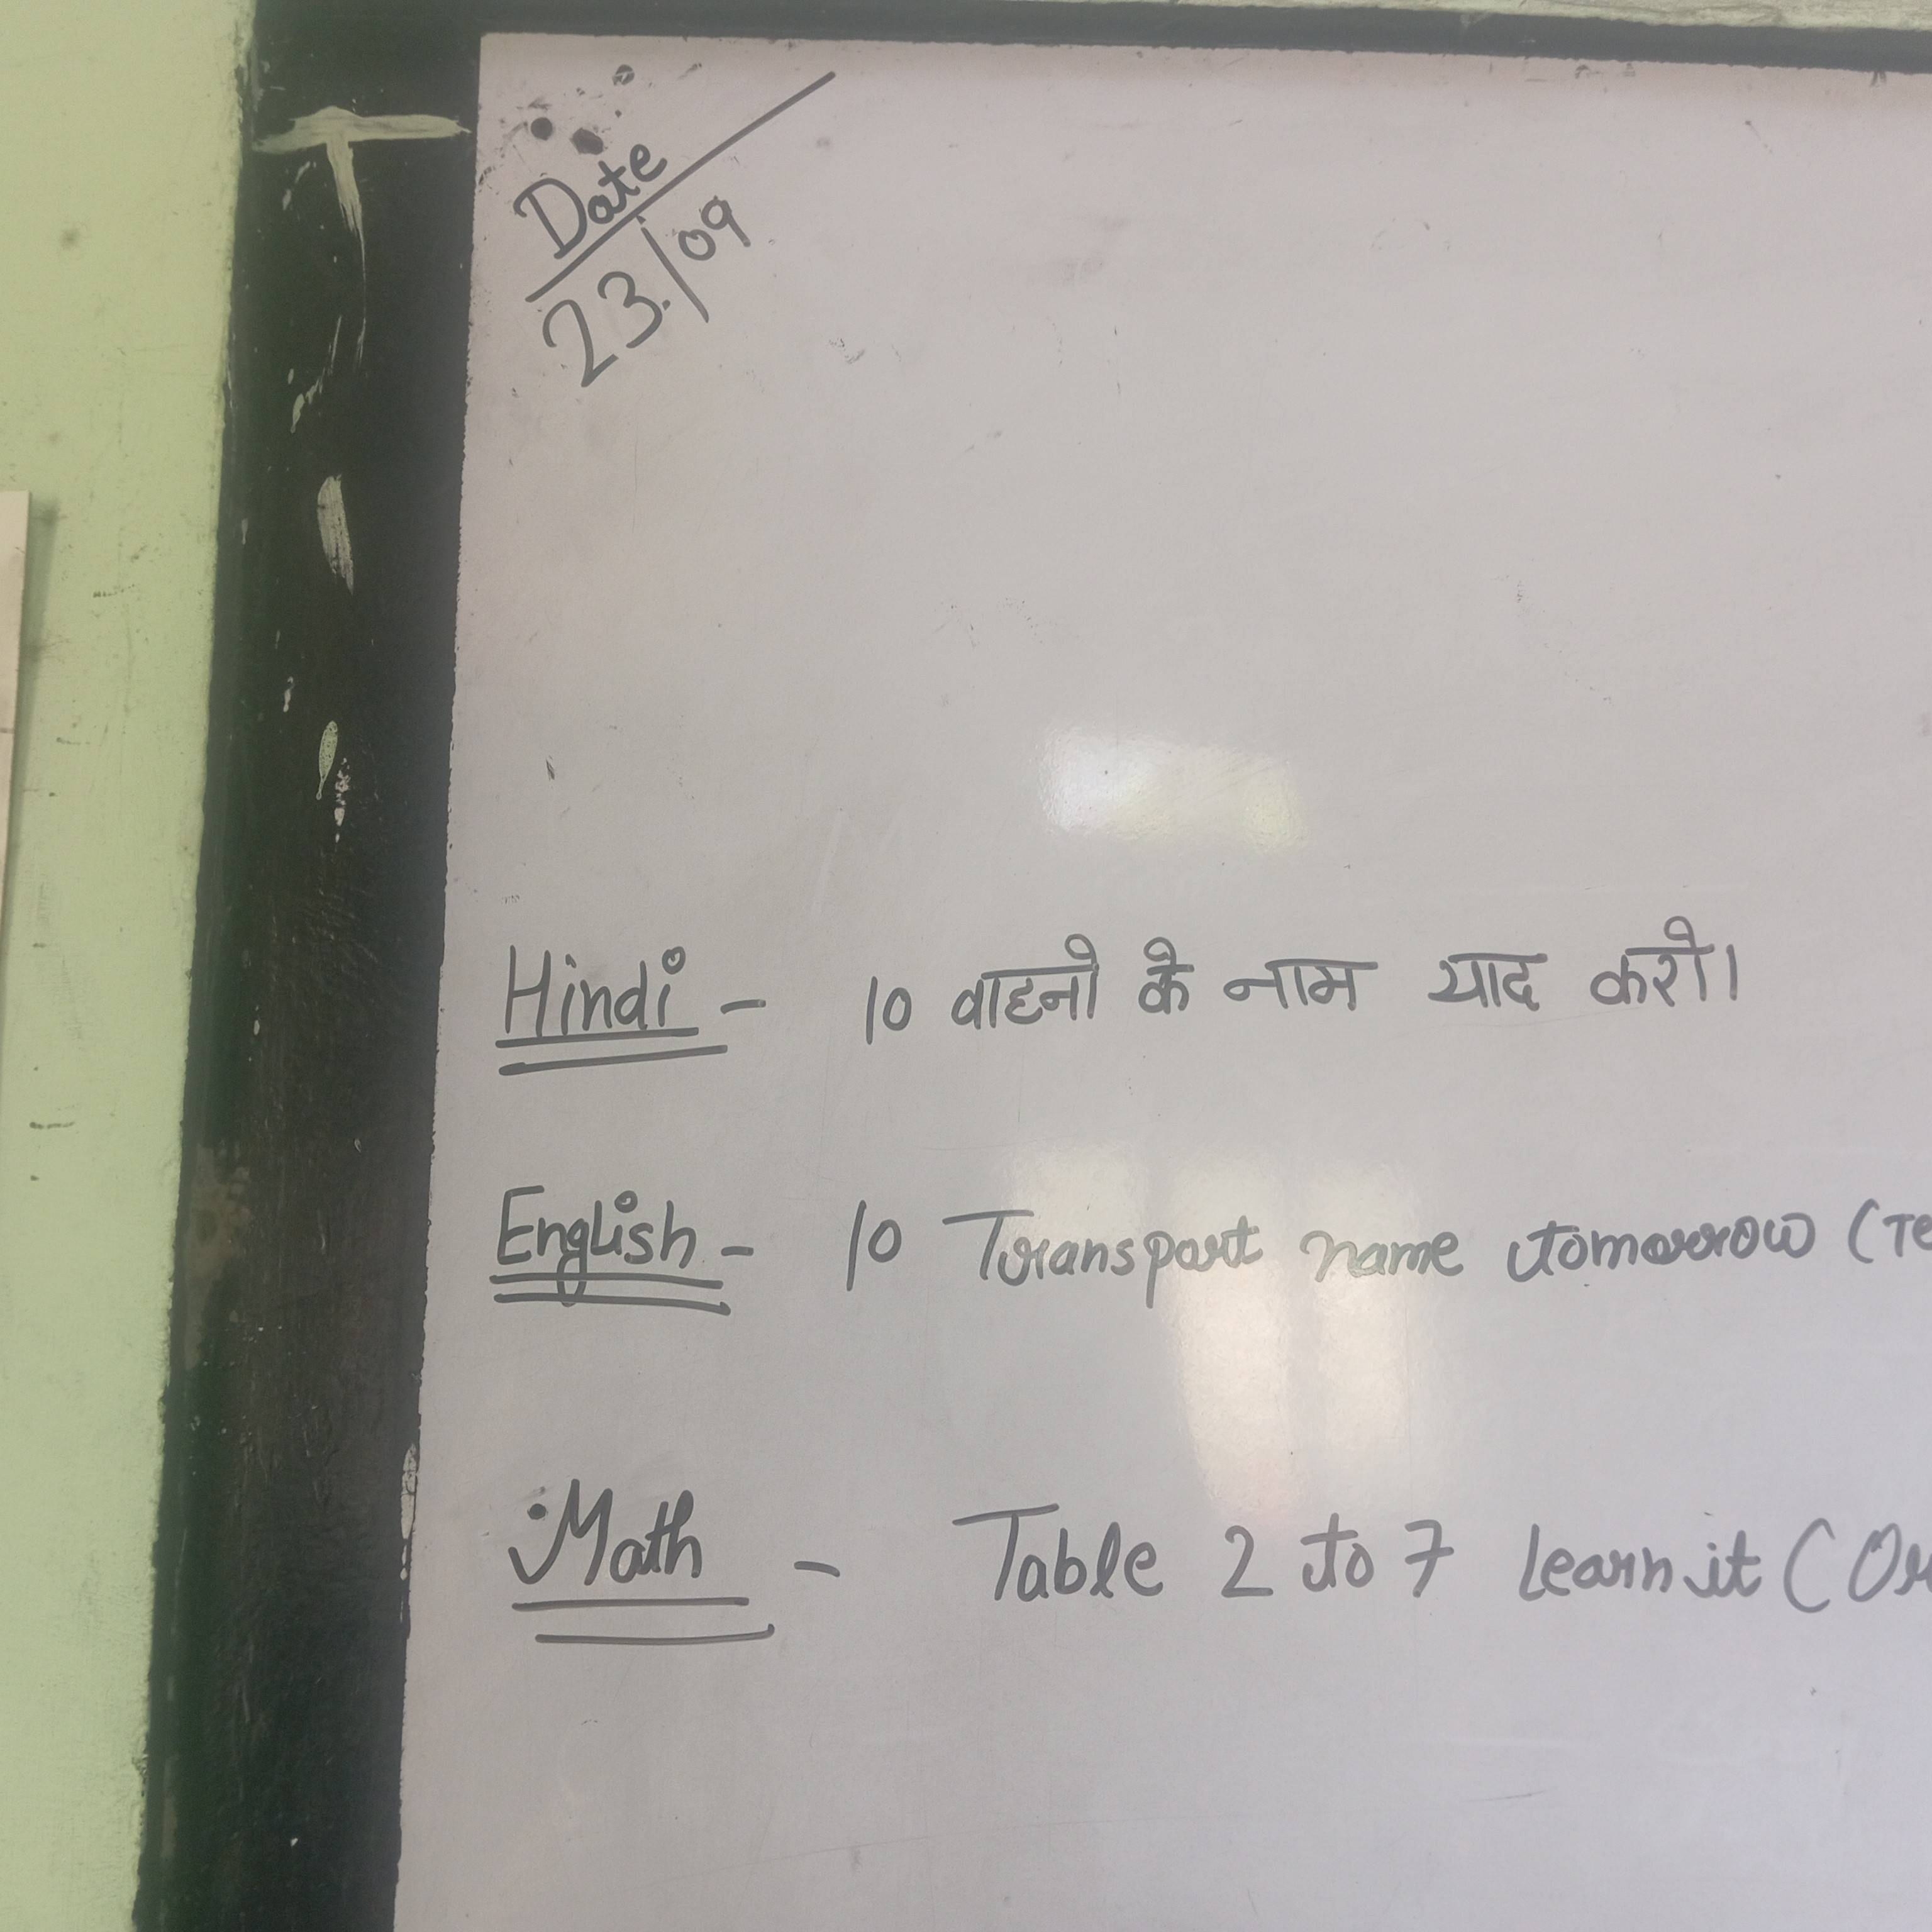 Date
23/09
Hindi - 10 वाहनो के नाम याद करो।
English - 10 Transport name tomorrow (Te
Math - Table 2 to 7 learn it (Or